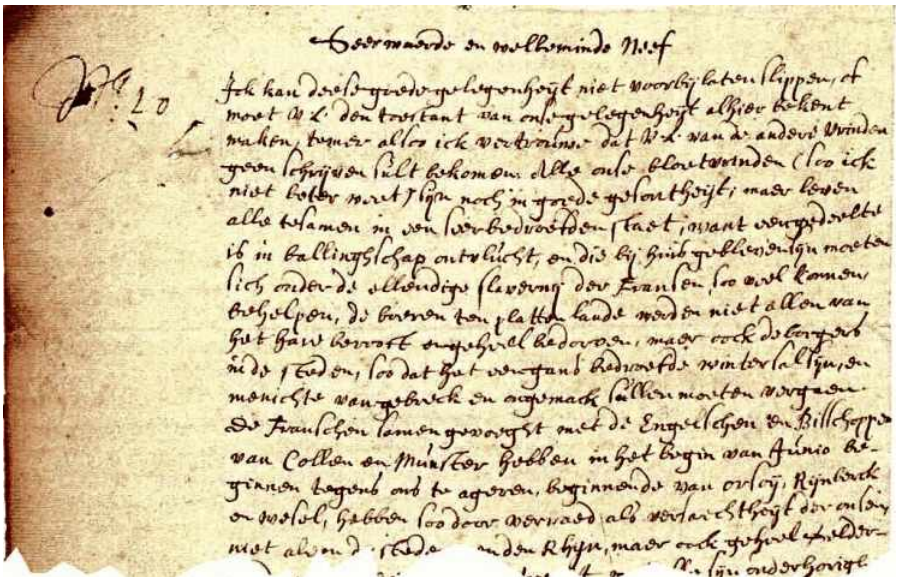 Seer waerde en welbeminde Neef
Ick kan deese goede gelegenheijt niet voorbij laten slippen, of
moet V L. den toestant van onse gelegenheijt alhier bekent
maken, temeer alsoo ick vertrouwe dat V L. van de andere vrinden
geen schrijven sult bekomen. Alle onse bloetvrinden (soo ick
niet beter weet) sijn noch in goede gesontheijt; maer leven
alle tesamen in een seer bedroefden staet, want een gedeelte
is in ballinghschap ontvlucht, en die bij huis gebleven sijn moeten
sich onder de ellendige slavernij der Fransen, soo veel konnen,
behelpen, de boeren ten platten lande werden niet alleen van
het hare berooft en geheel bedorven, maer oock de borgers
in de steden, soo dat het een gans bedroefde winter sal sijn, en
menichte van gebreck en ongemack sullen moeten vergaen.
De Franschen samen gevoeght met de Engelschen en Bisschoppen
van Collen en Munster hebben in het begin van Junio be-
ginnen tegens ons te ageren, beginnende van Orsoij, Rijnberck
en Wesel, hebben soo door verraed als versaechtheijt der onsen,
niet alleen d. stede den Rhijn, maer oock geheel Gelder-
sijn onderhorige